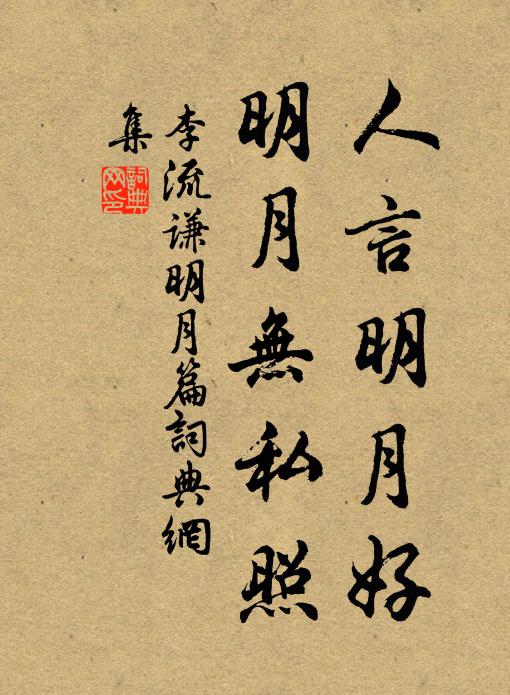 人言明月好
明月無私照
李流谦明月篇詞典網
集
詞典
网印